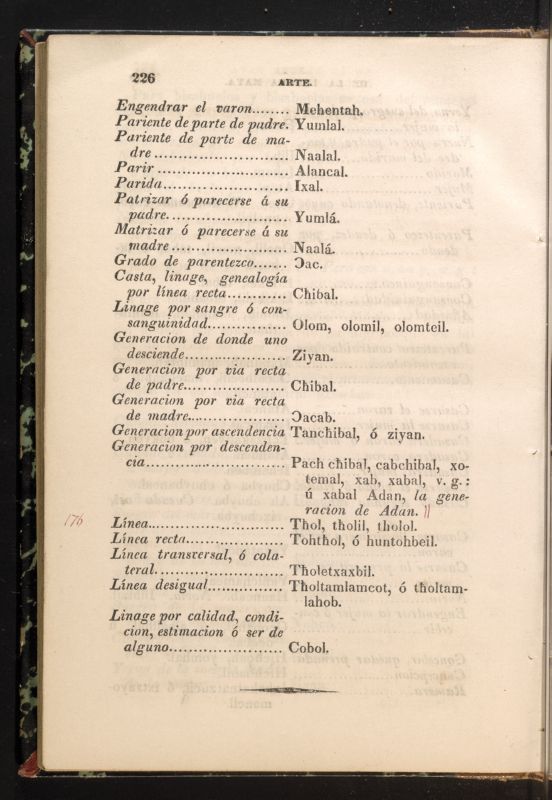 226
ARTE.
Engendrar el varon........ Mehentah.
Pariente de parte de padre. Yumlal.
Pariente de parte de ma-
dre.......................... Naalal.
Parir.......................... Alancal.
Parida......................... Ixal.
Patrizar ó parecerse á su
padre....................... Yumlá.
Matrizar ó parecerse á su
madre...................... Naalá.
Grado de parentezco....... Ɔac.
Casta, linage, genealogía
por línea recta............ Chibal.
Linage por sangre ó con-
sanguinidad................ Olom, olomil, olomteil.
Generacion de donde uno
desciende.................... Ziyan.
Generacion por via recta
de padre..................... Chibal.
Generacion por via recta
de madre.................... Ɔacab.
Generacion por ascendencia Tanchibal, ó ziyan.
Generacion por descenden-
cia............................ Pach chibal, cabchibal, xo-
temal, xab, xabal, v. g.:
ú xabal Adan, la gene-
racion de Adan. ||
176
Línea........................... Tħol, tħolil, tħolol.
Línea recta................... Tohtħol, ó huntohbeil.
Línea transversal, ó cola-
teral.......................... Tħoletxaxbil.
Línea desigual............... Tħoltamlamcot, ó tħoltam-
lahob.
Linage por calidad, condi-
cion, estimacion ó ser de
alguno....................... Cobol.